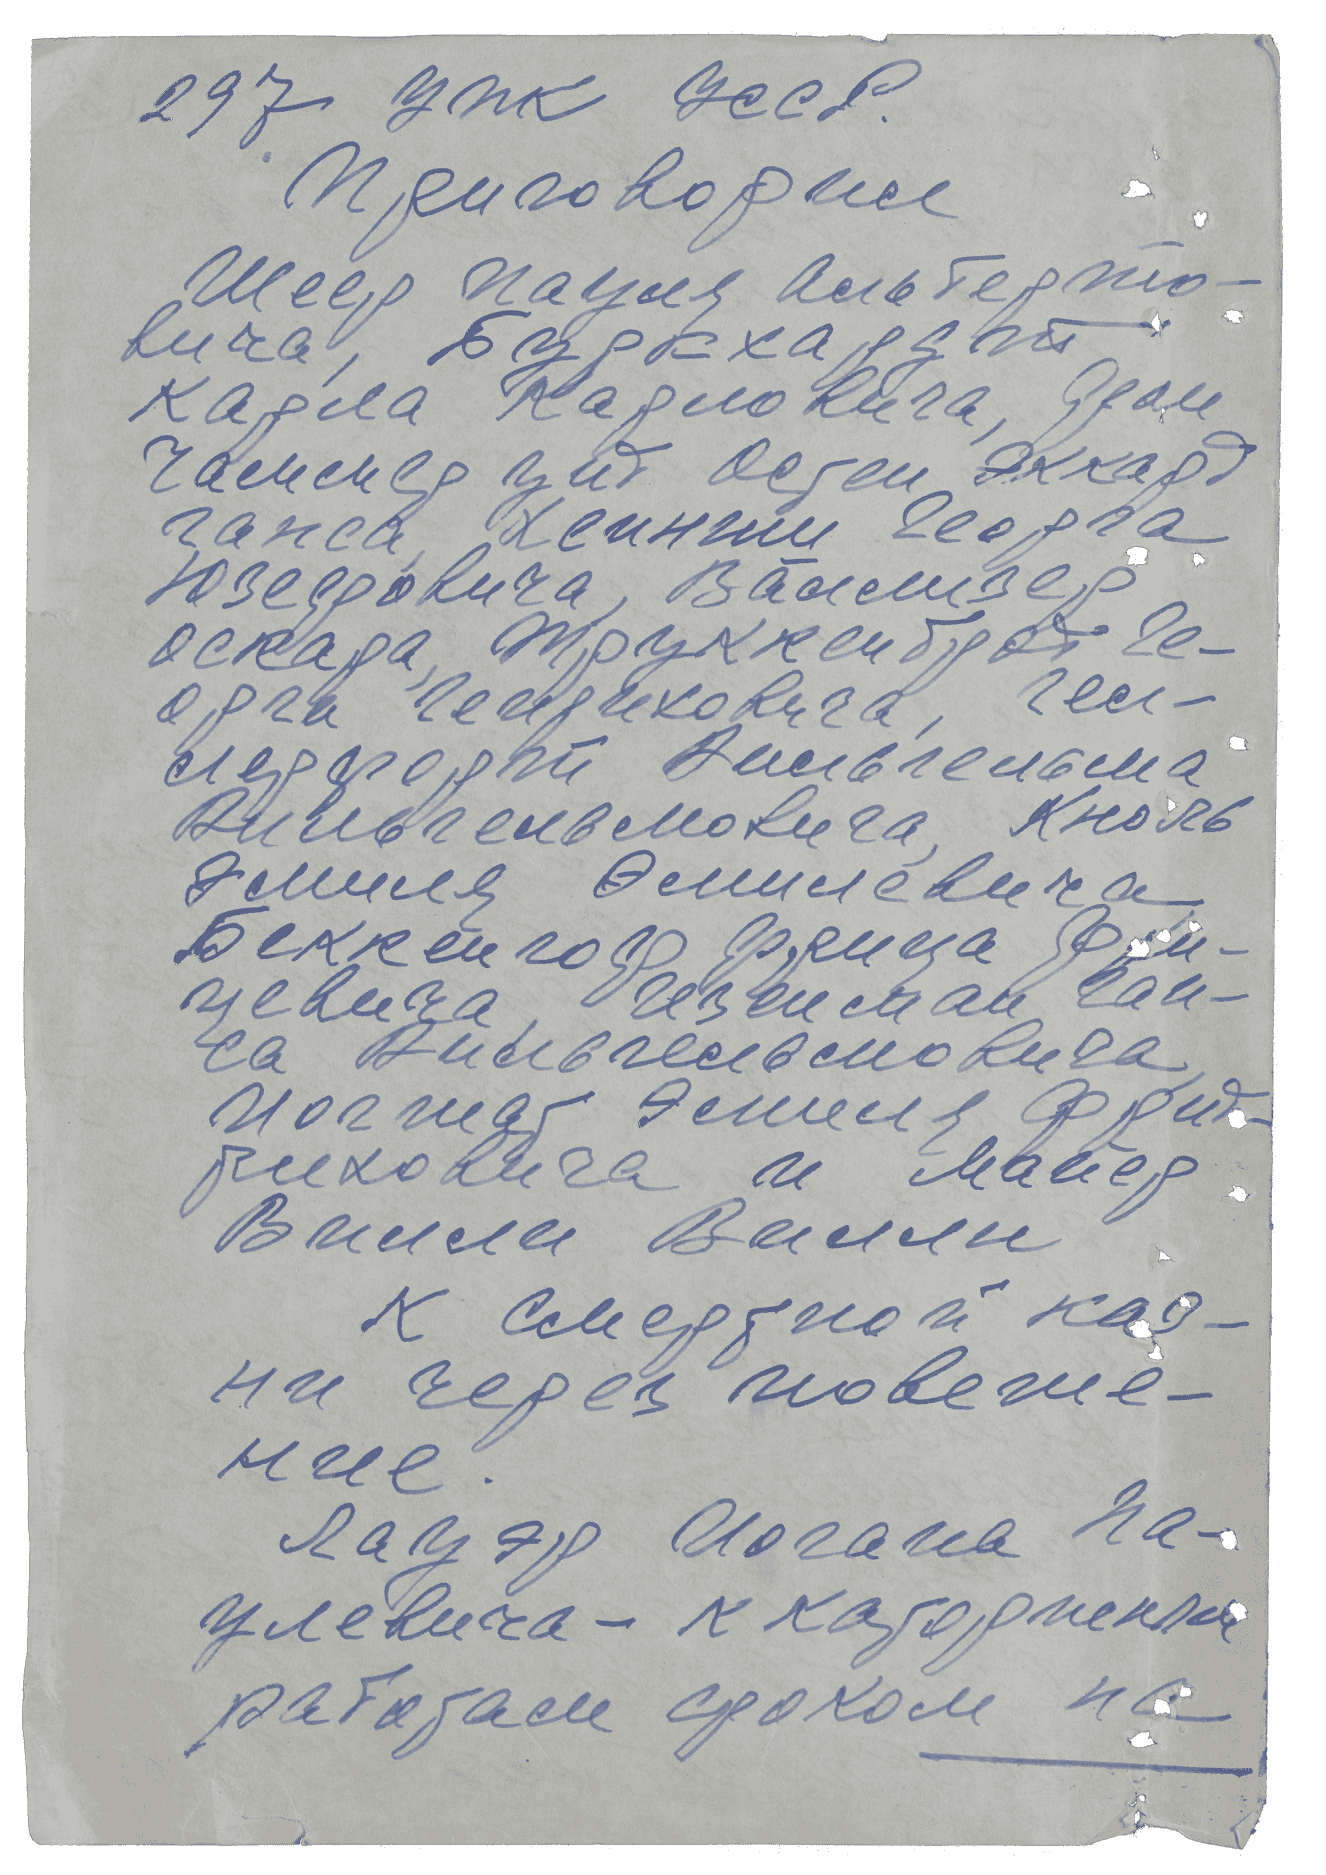 297 УПК УССР.
Приговорил
Шеер Пауля Альберто-
вича, Буркхардт
Карла Карловича, Фон
Чаммер унд Остен Эккард
Ганса, Хеншки Георга
Юзефовича, Валлизер
Оскара, Труккенброт Ге-
орга Генриховича, Гел-
лерфорт Вильгельма
Вильгельмовича, Кноль
Эмиля Эмилевича,
Беккенгоф Фрица Фри-
цевича, Изенман Ган-
са Вильгельмовича,
Иогшат Эмиля Фрид-
риховича и Майер
Вилли Вилли
К смертной каз-
ни через повеше-
ние.
Лауэр Иогана Па-
улевича - к каторжным
работам сроком на